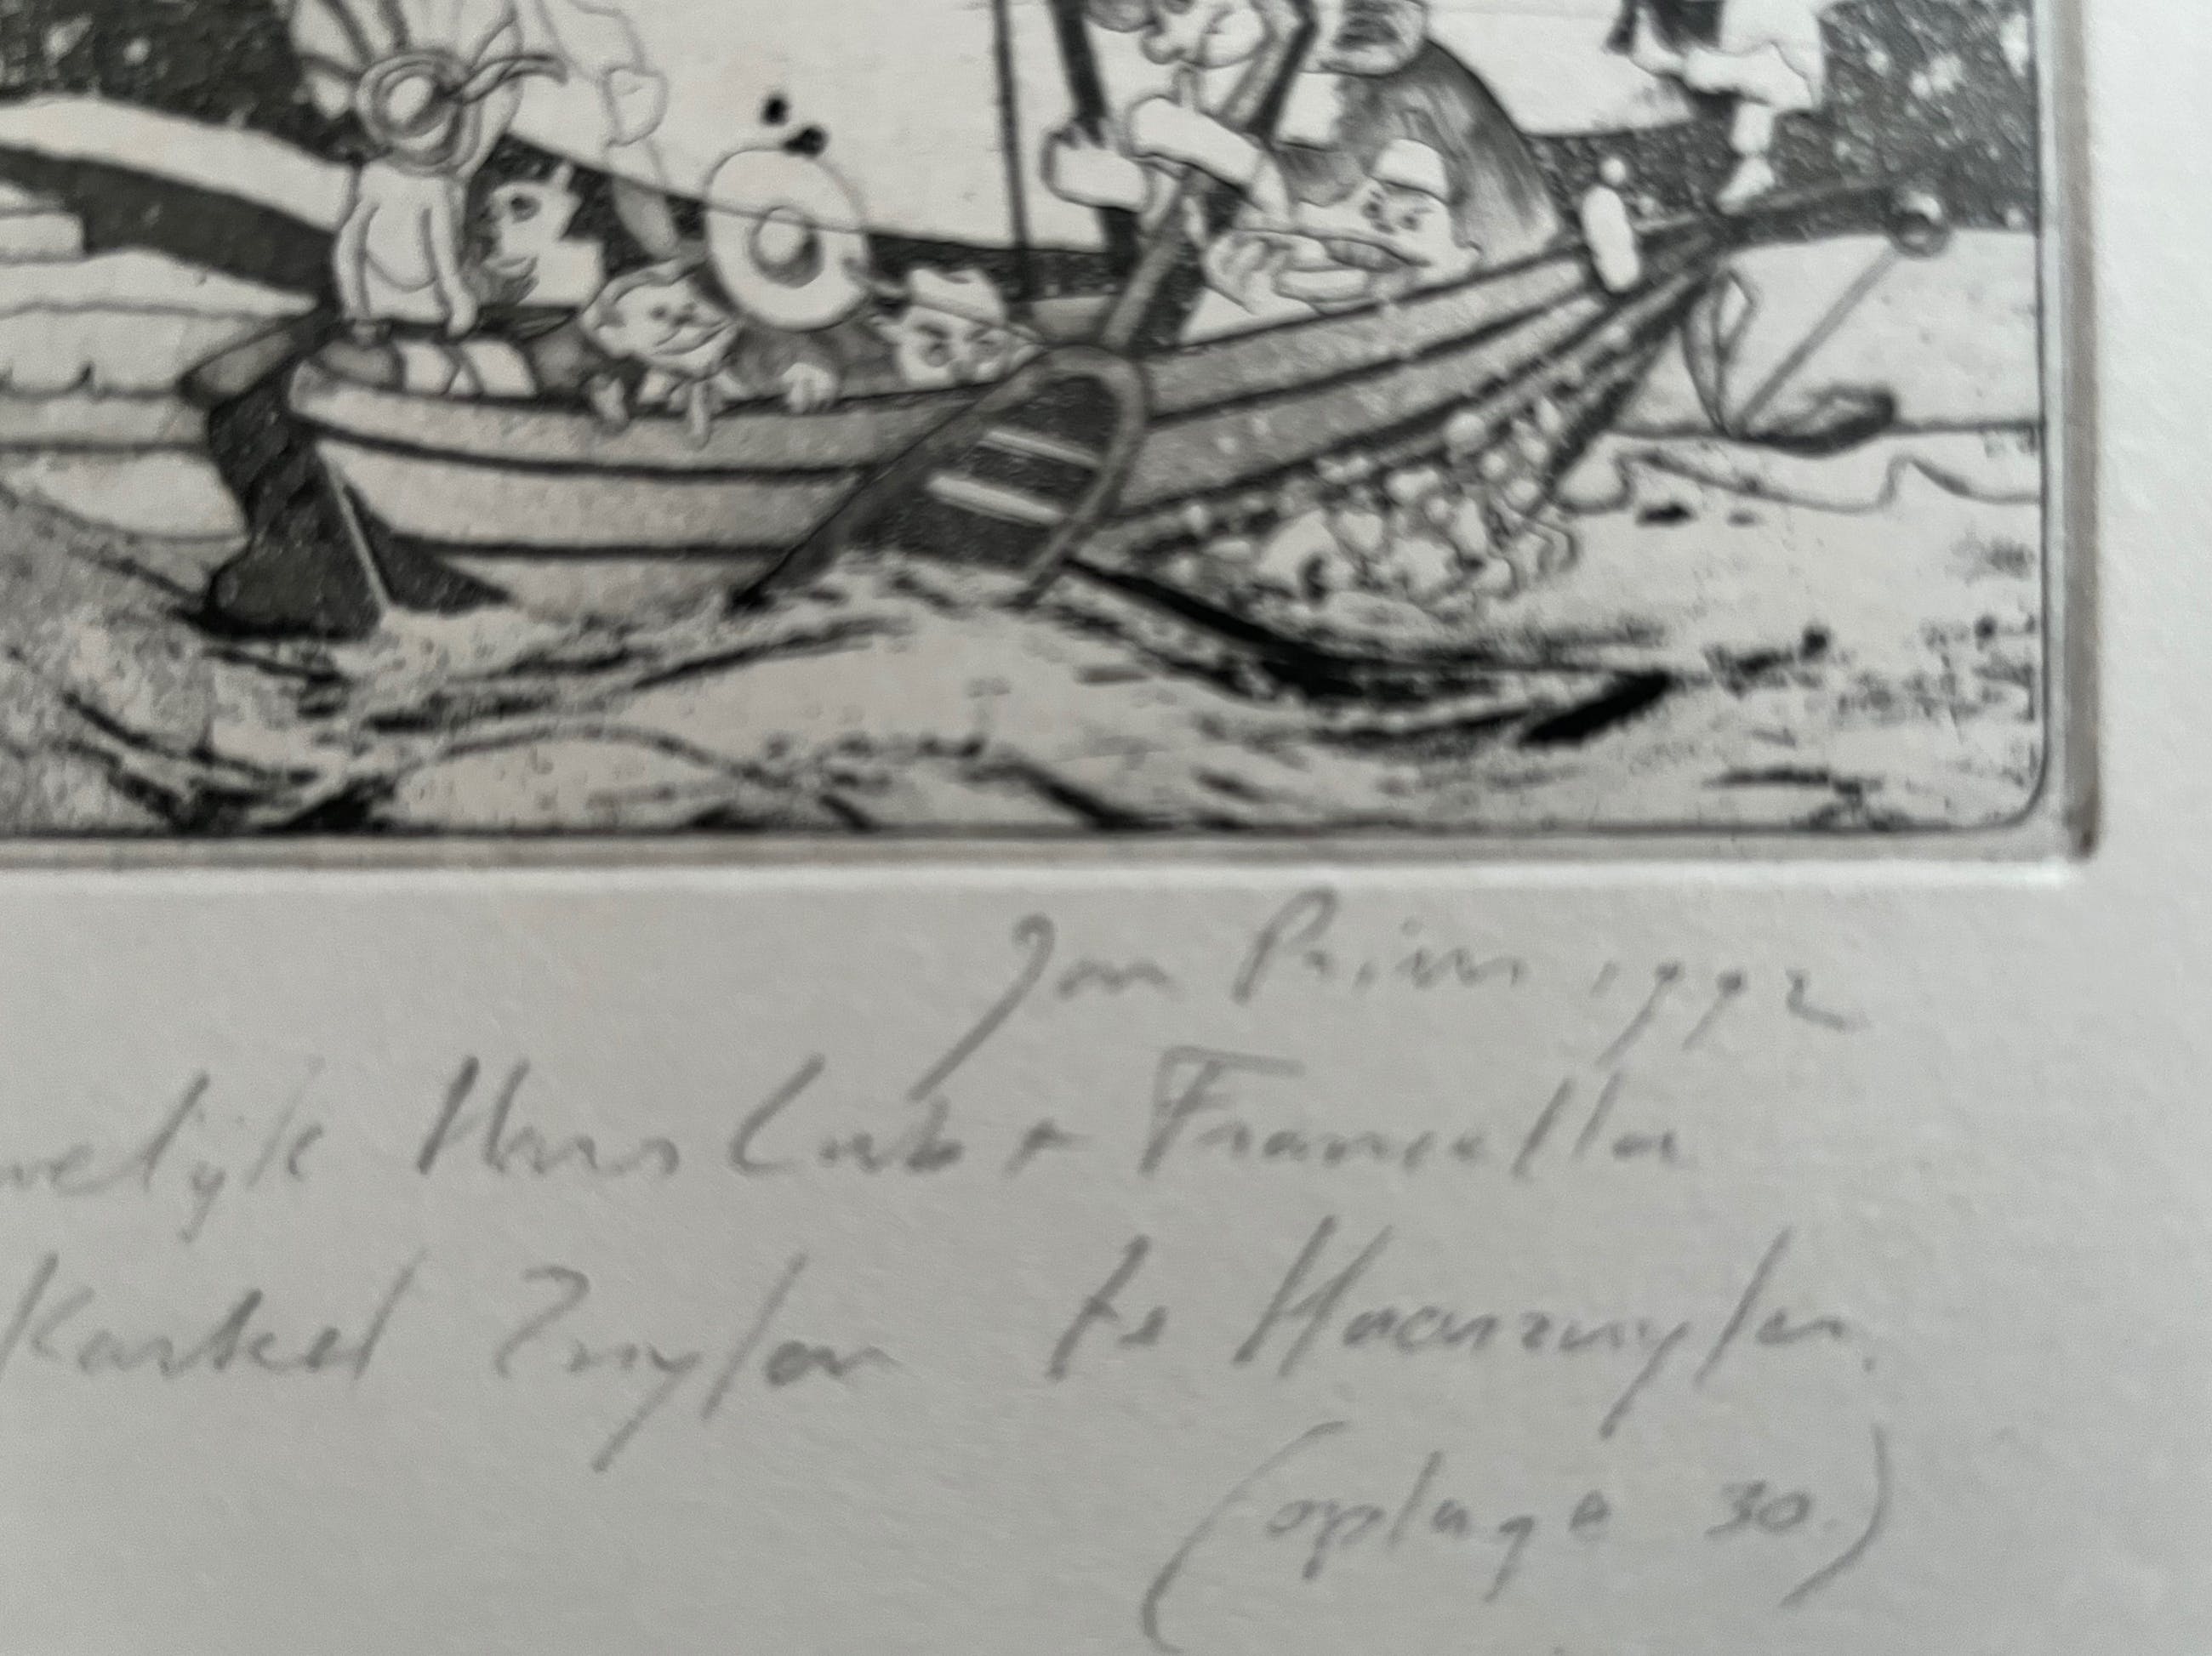 Jan Prins 1992
welijk Hans Lub + Francella
Kasteel Zuylen te Haarzuylen.
(oplage 30.)